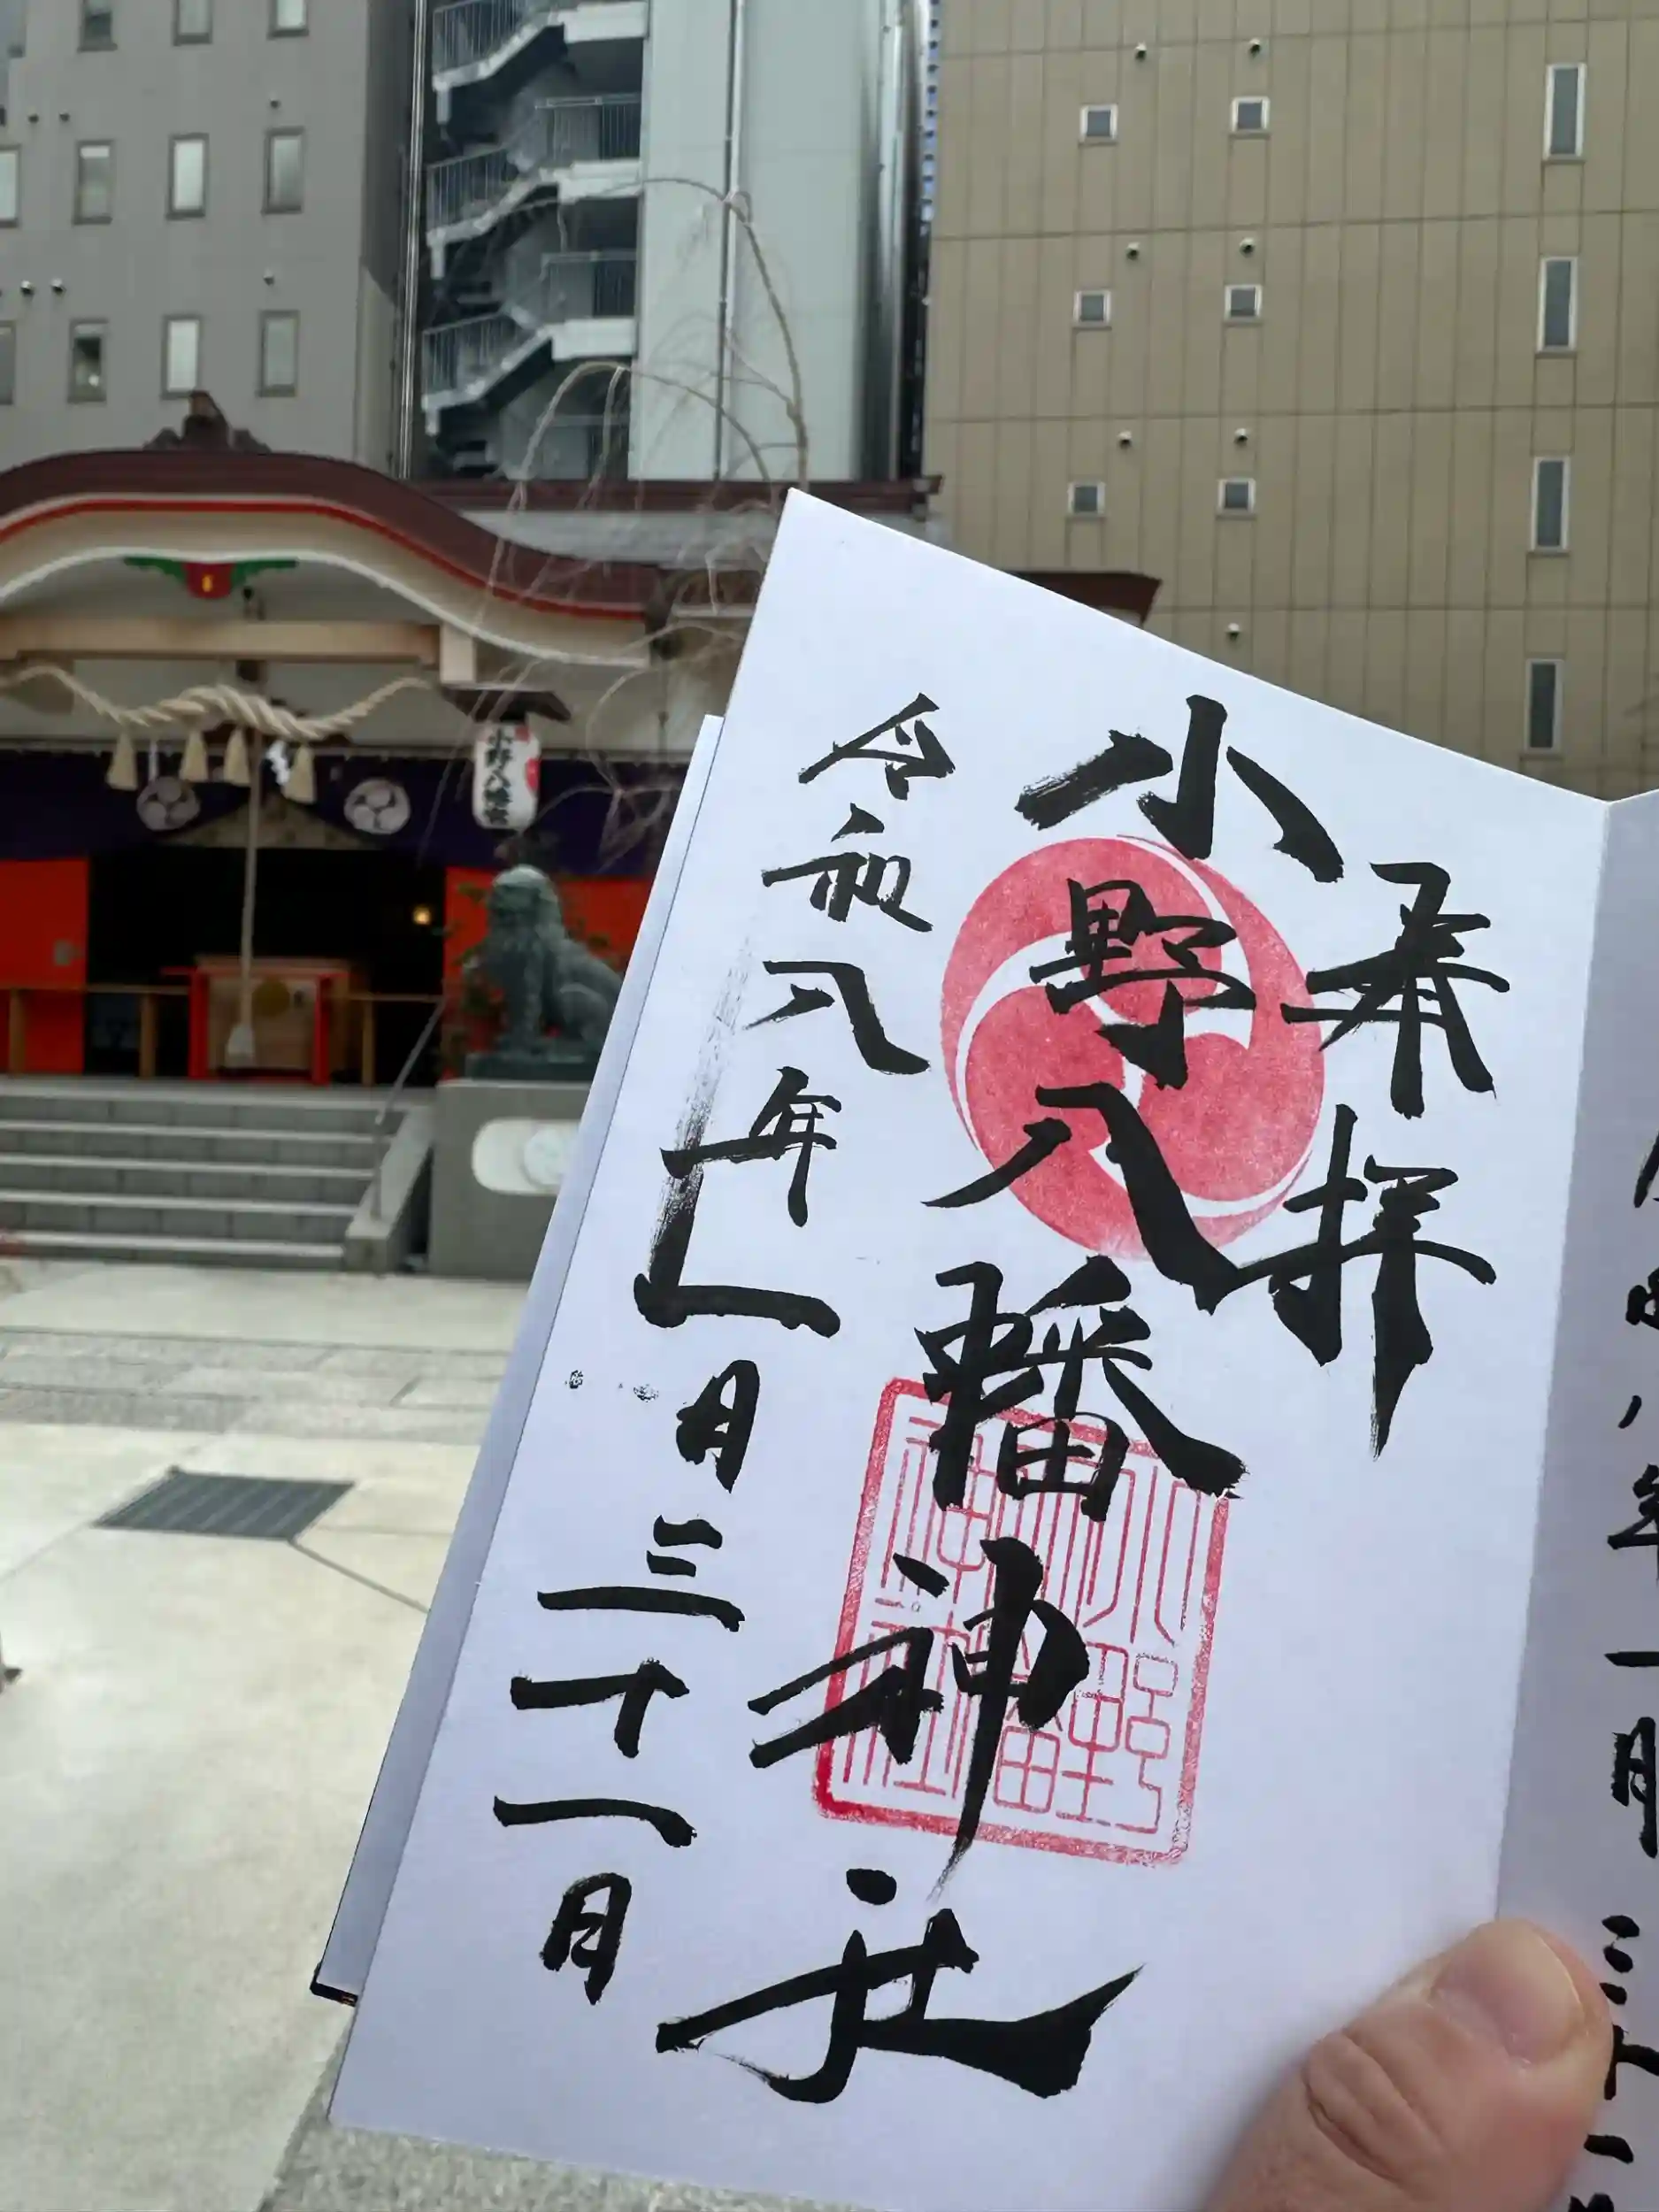 奉拝
小野八幡神社
令和八年一月三十一日
小野
八幡
神社
八年一月三十一
小野八幡宮